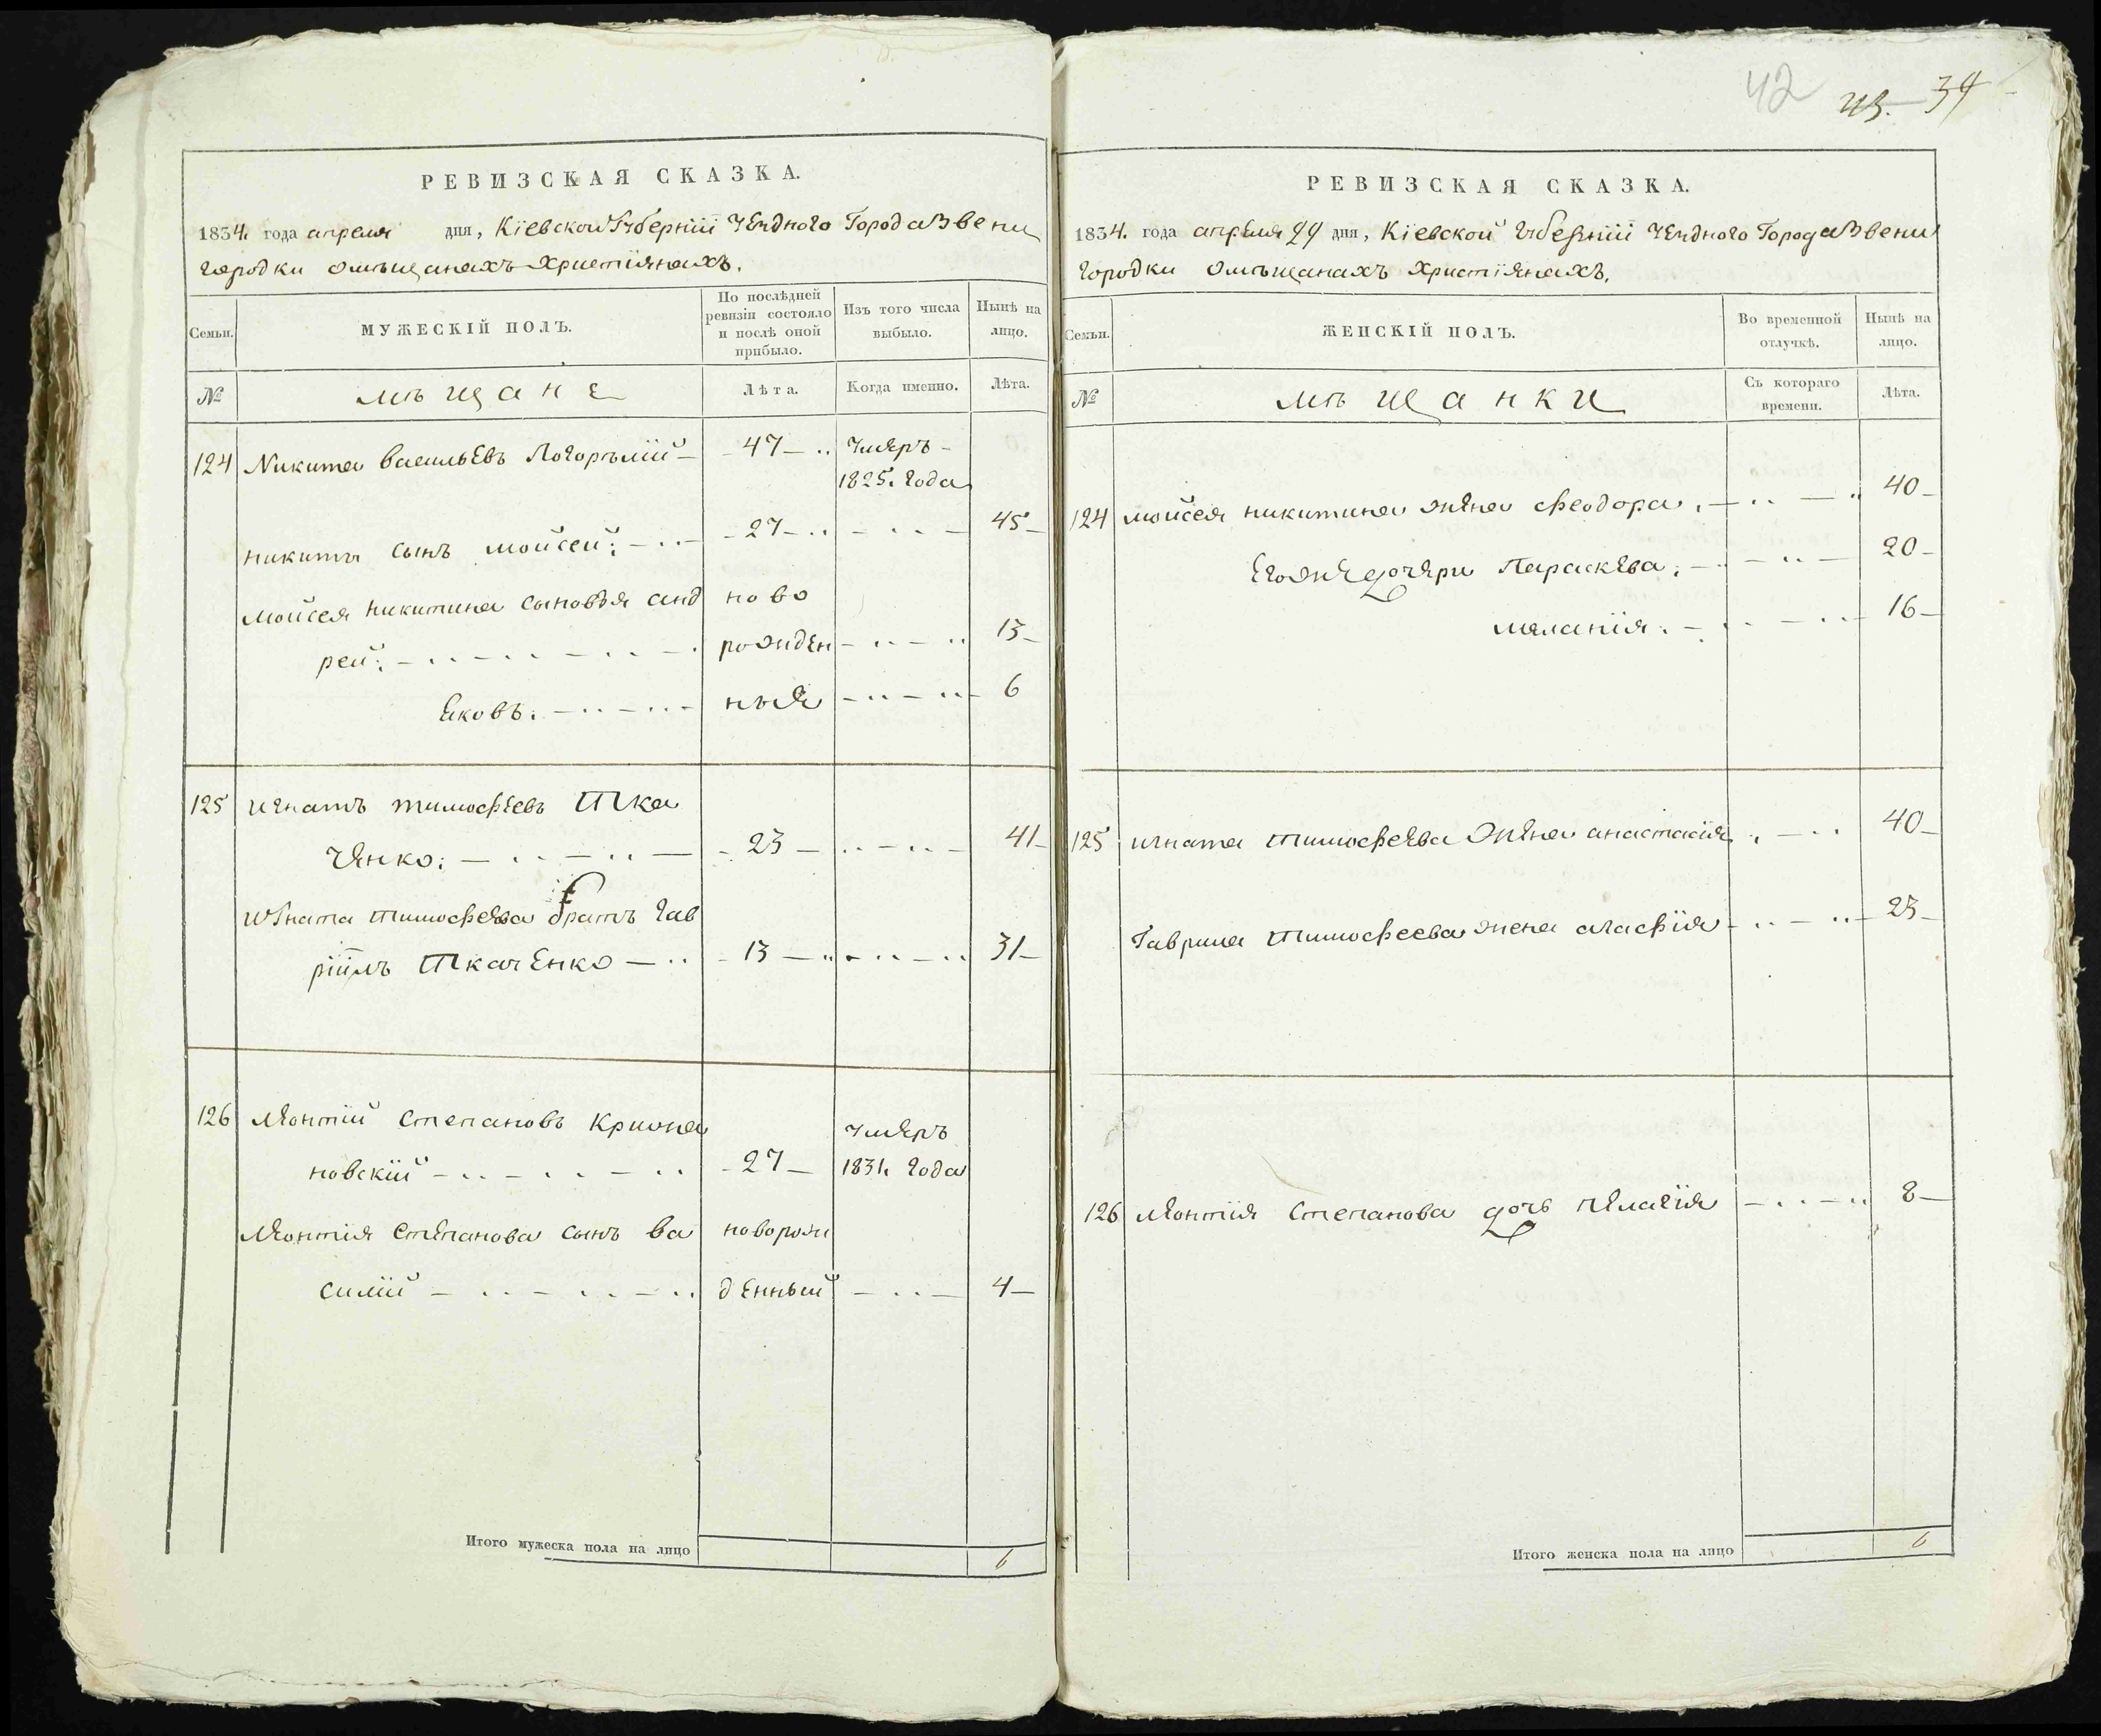 РЕВИЗСКАЯ СКАЗКА.
1834. года апреля дня, Кіевской Губерніи Уѣздного Города Звени
городки омѣщанахъ Христіянахъ.
Семьи.
МУЖЕСКІЙ ПОЛЪ.
По послѣдней ревизіи состояло и послѣ оной прибыло.
Изъ того числа выбыло.
Нынѣ на лицо.
№
мѣщане
Лѣта.
Когда именно.
Лѣта.
124 Никита васильевъ Погорѣлій 47 Умеръ
1825. года
никиты сынъ мойсей: 27 45
мойсея никитина сыновья анд ново
рей: рожден 13
Яковъ. ныя 6
125 игнатъ тимофеевъ Тка
ченко: 23 41
игната тимофеева братъ гав
ріилъ Ткаченко 13 31
126 Леонтій Степановъ
новскій 27 Умеръ 1831. года
Леонтія Степанова сынъ ва новорож
силій денный 4
Итого мужеска пола на лицо 6
42 43. 34
РЕВИЗСКАЯ СКАЗКА.
1834. года апреля 29 дня, Кіевской Губерніи Уѣздного Города Звени
городки омѣщанахъ Христіянахъ.
Семьи.
ЖЕНСКІЙ ПОЛЪ.
Во временной отлучкѣ.
Нынѣ на лицо.
№
мѣщанки
Съ котораго времени.
Лѣта.
124 мойсея никитина жена феодора. 40
Егоже дочери Параскева. 20
меланія. 16
125 игната тимофеева жена анастасія. 40
Гаврила тимофеева жена агафія 23
126 Леонтія Степанова дочь пелагія 8
Итого женска пола на лицо 6